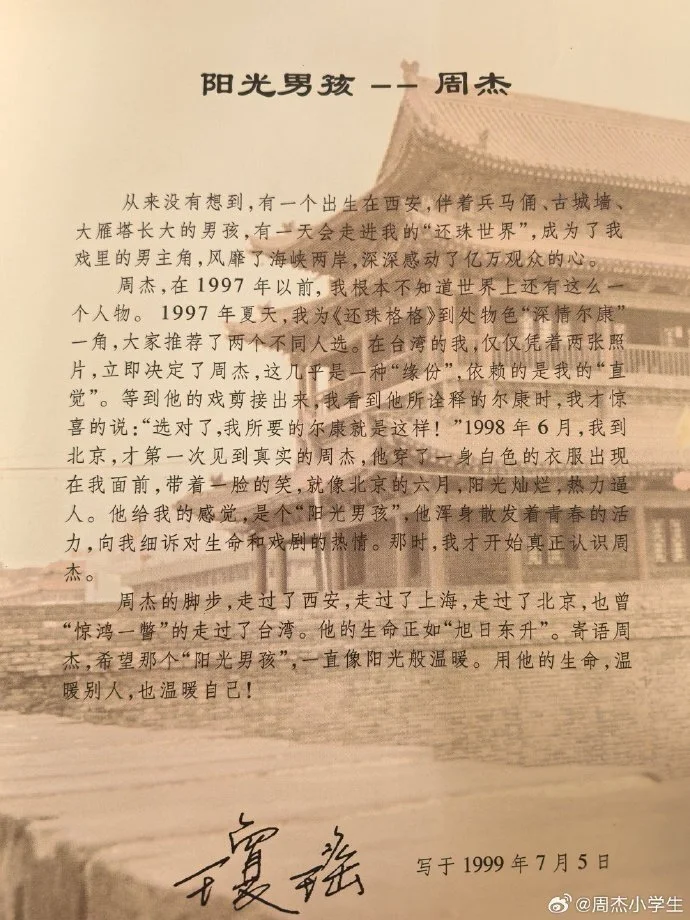 阳光男孩 -- 周杰
从来没有想到,有一个出生在西安,伴着兵马俑、古城墙、
大雁塔长大的男孩,有一天会走进我的“还珠世界”,成为了我
戏里的男主角,风靡了海峡两岸,深深感动了亿万观众的心。
周杰,在1997年以前,我根本不知道世界上还有这么一
个人物。1997年夏天,我为《还珠格格》到处物色“深情尔康”
一角,大家推荐了两个不同人选。在台湾的我,仅仅凭着两张照
片,立即决定了周杰,这几乎是一种“缘份”,依赖的是我的“直
觉”。等到他的戏剪接出来,我看到他所诠释的尔康时,我才惊
喜的说:“选对了,我所要的尔康就是这样!”1998年6月,我到
北京,才第一次见到真实的周杰,他穿了一身白色的衣服出现
在我面前,带着一脸的笑,就像北京的六月,阳光灿烂,热力逼
人。他给我的感觉,是个“阳光男孩”,他浑身散发着青春的活
力,向我细诉对生命和戏剧的热情。那时,我才开始真正认识周
杰。
周杰的脚步,走过了西安,走过了上海,走过了北京,也曾
“惊鸿一瞥”的走过了台湾。他的生命正如“旭日东升”。寄语周
杰,希望那个“阳光男孩”,一直像阳光般温暖。用他的生命,温
暖别人,也温暖自己!
琼瑶
写于1999年7月5日
@周杰小学生